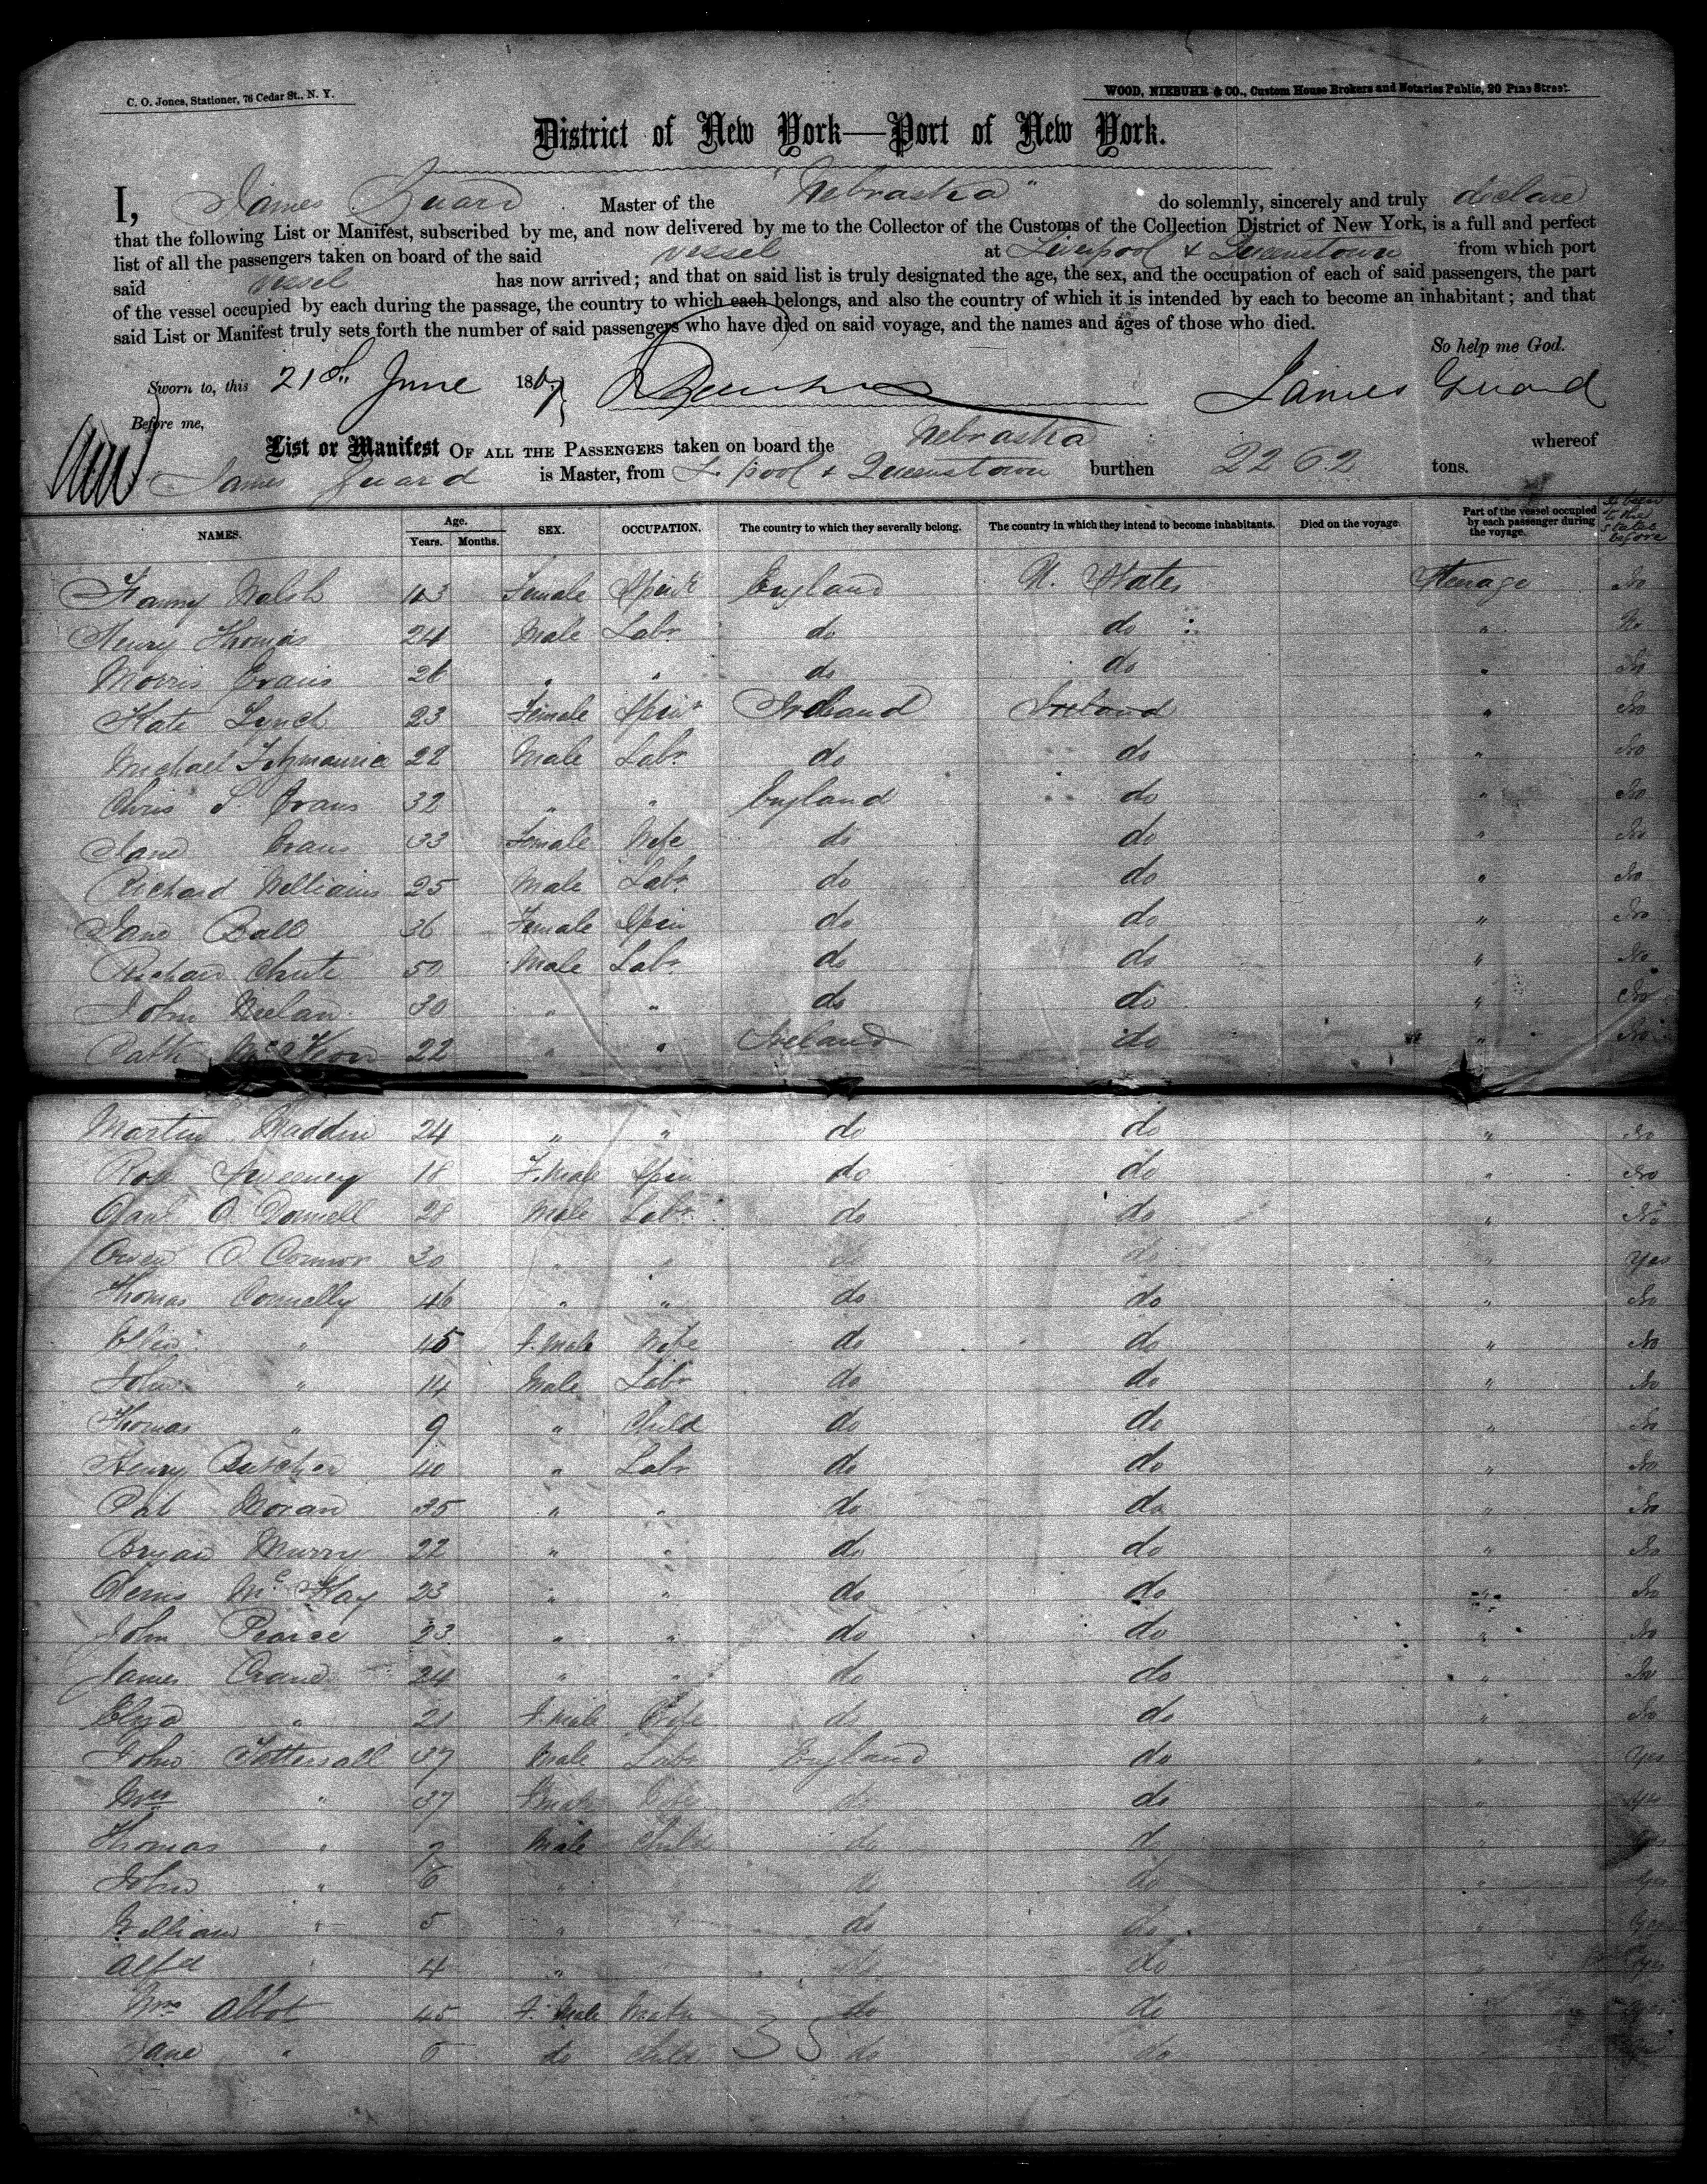 C. O. Jones, Stationer, 76 Cedar St., N. Y.
WOOD, NIEBUHR & CO., Custom House Brokers and Notaries Public, 20 Pine Street.
District of New York—Port of New York.
I, James Guard Master of the "Nebraska" do solemnly, sincerely and truly declare
that the following List or Manifest, subscribed by me, and now delivered by me to the Collector of the Customs of the Collection District of New York, is a full and perfect
list of all the passengers taken on board of the said vessel at Liverpool & Queenstown from which port
said vessel has now arrived; and that on said list is truly designated the age, the sex, and the occupation of each of said passengers, the part
of the vessel occupied by each during the passage, the country to which each belongs, and also the country of which it is intended by each to become an inhabitant; and that
said List or Manifest truly sets forth the number of said passengers who have died on said voyage, and the names and ages of those who died.
So help me God.
Sworn to, this 21st June 1867 James Guard
Before me,
List or Manifest OF ALL THE PASSENGERS taken on board the Nebraska whereof
James Guard is Master, from L. pool & Queenstown burthen 2262 tons.
NAMES. Age. Years. Months. SEX. OCCUPATION. The country to which they severally belong. The country in which they intend to become inhabitants. Died on the voyage. Part of the vessel occupied by each passenger during the voyage. If been to the states before
Fanny Walsh Female England U. States Steerage No
Henry Thomas 24 Male Labr do do " No
Morris Evans 26 " " do do " No
Kate Lynch 23 Female Spinr Ireland Ireland " No
Michael Fitzmaurice 22 Male Labr do do " No
Chris S. Evans 32 " " England do " No
Jane Evans 33 Female Wife do do " No
Richard Williams 25 Male Labr do do " No
Jane Ball 36 Female Spin do do " No
Richard Chute 50 Male Labr do do " No
John 30 " " do do " No
Path McKeon 22 " " Ireland do " No
Martin Maddin 24 " " do do " No
Rose Sweeney 18 F.male Spin do do " No
O. Donnell 28 Male Labr do do " No
Owen O Connor 30 " " do do " Yes
Thomas Connelly 46 " " do do " No
Ellen " 45 F.male Wife do do " No
John " 14 Male Labr do do " No
Thomas " 9 " Child do do " No
Henry Butcher 40 " Labr do do " No
Pat Moran 25 " " do do " No
Bryan Murry 22 " " do do " No
Denis McKay 23 " " do do " No
John Pearce 23 " " do do " No
James Crane 24 " " do do " No
Eliza " 21 F.male Wife do do " No
John Tattersall 37 Male Labr England do " Yes
Mrs " 37 Female Wife do do " yes
Thomas " 7 Male Child do do " yes
John " 6 " do do " yes
William " 5 " " do do " yes
Alfd " 4 " do do " yes
Mrs Abbot 45 F.Male do do yes
Jane " 5 do Child do do
35